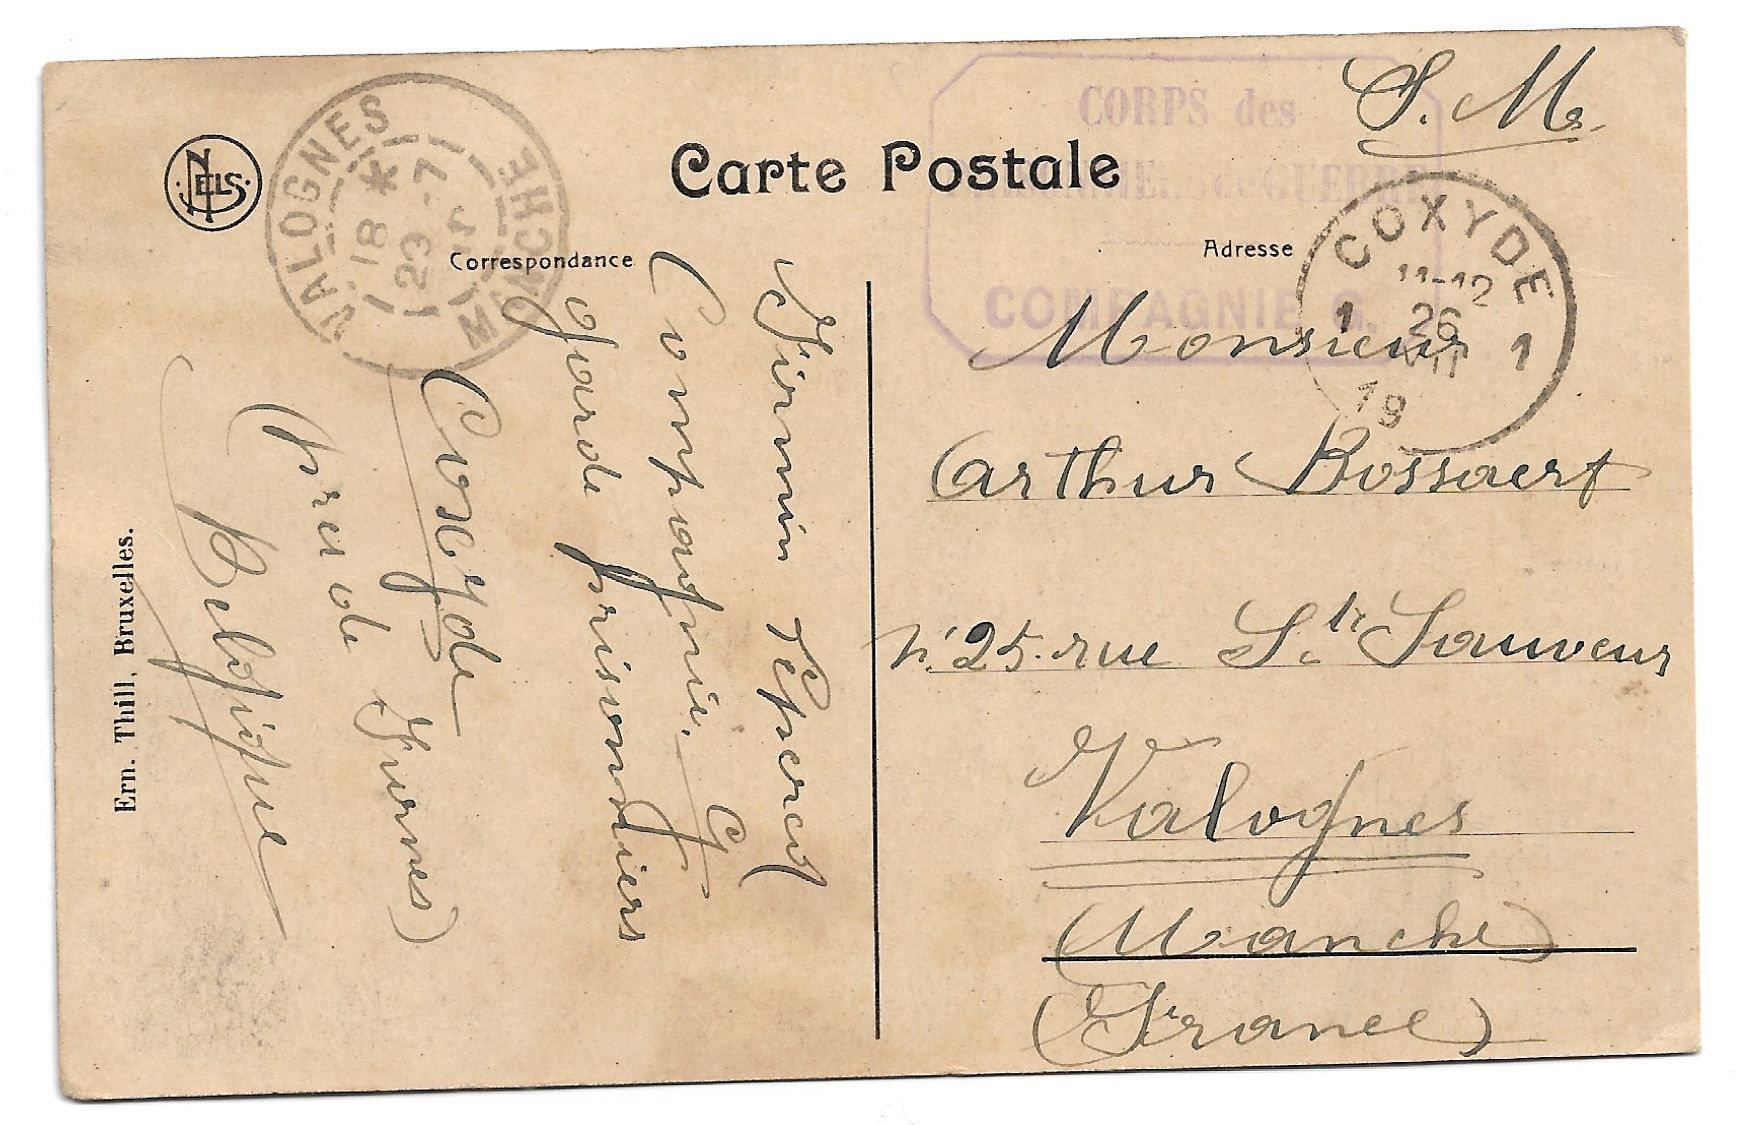 NELS
VALOGNES
MANCHE
18 *
29 -7
Carte Postale
Correspondance
Adresse
CORPS des
de GUERRE
COMPAGNIE G.
S. M.
COXYDE
11-12
1 26 1
VII
19
Firmin
Compagnie. G
garde prisonniers
Coxyde
(près de Furnes)
Belgique
Monsieur
Arthur Bossaert
N° 25. rue St. Sauveur
Valognes
(Manche)
(France)
Ern. Thill, Bruxelles.